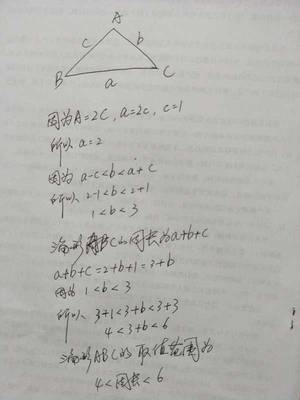 A
c b
B a C
因为A=2C, a=2c, c=1
所以 a=2
因为 a-c<b<a+c
所以 2-1<b<2+1
1<b<3
BC的周长为a+b+c
a+b+c=2+b+1=3+b
因为 1<b<3
所以 3+1<3+b<3+3
4<3+b<6
ABC的取值范围为
4<周长<6